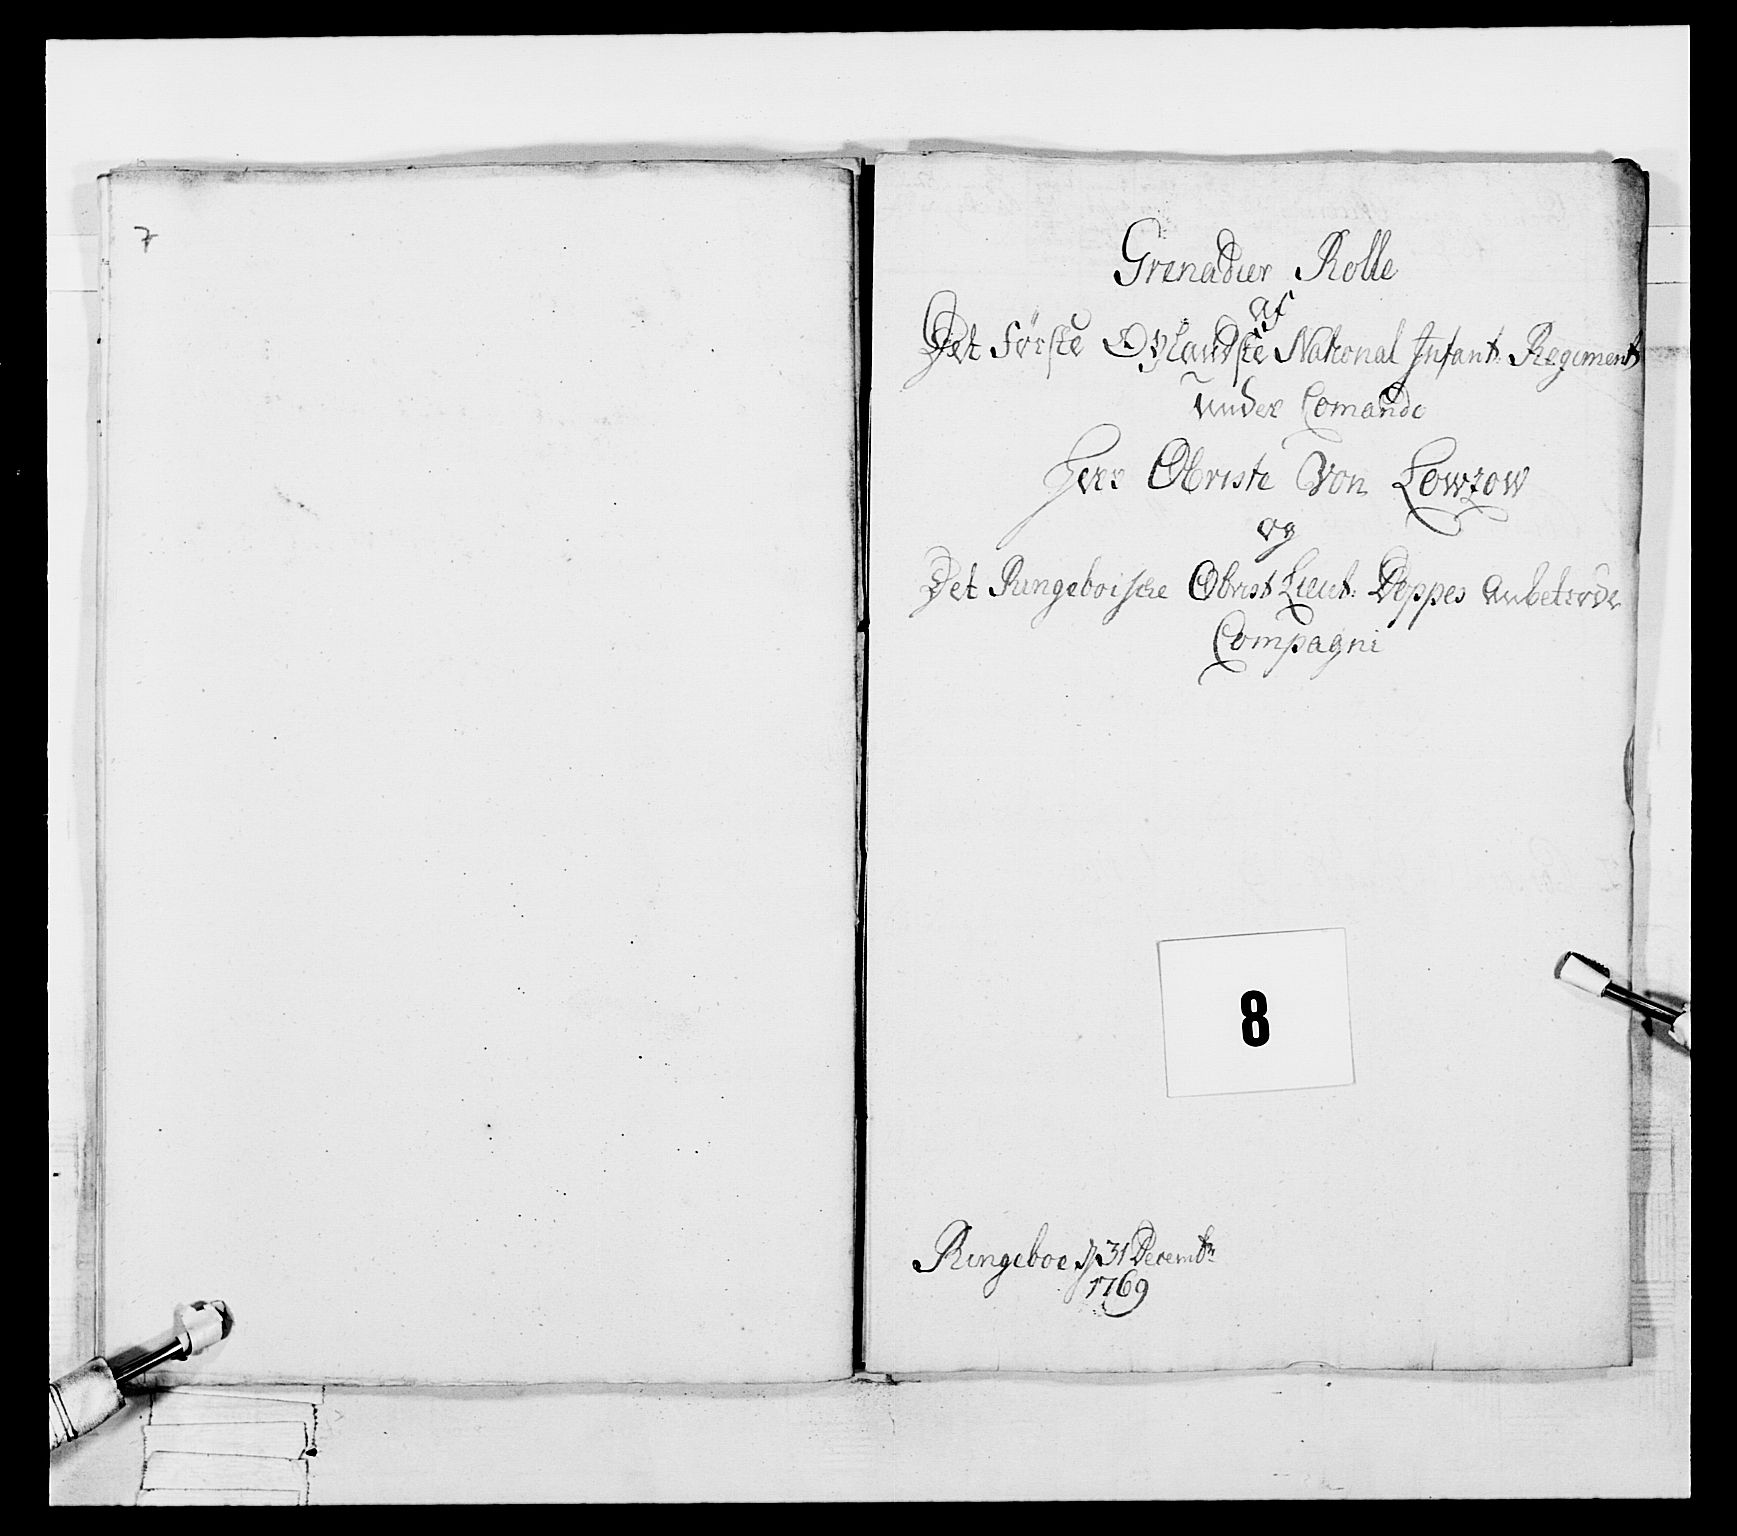 7
Grenadier Rolle
af
Det Første Oplandske National Infant: Regiment
under Comando
Herr Obriste Von Lowzow
og
Det Ringeboische Obrist Lieut: Deppes anbetrode
Compagni
8
Ringeboe d 31 Decembr
1769